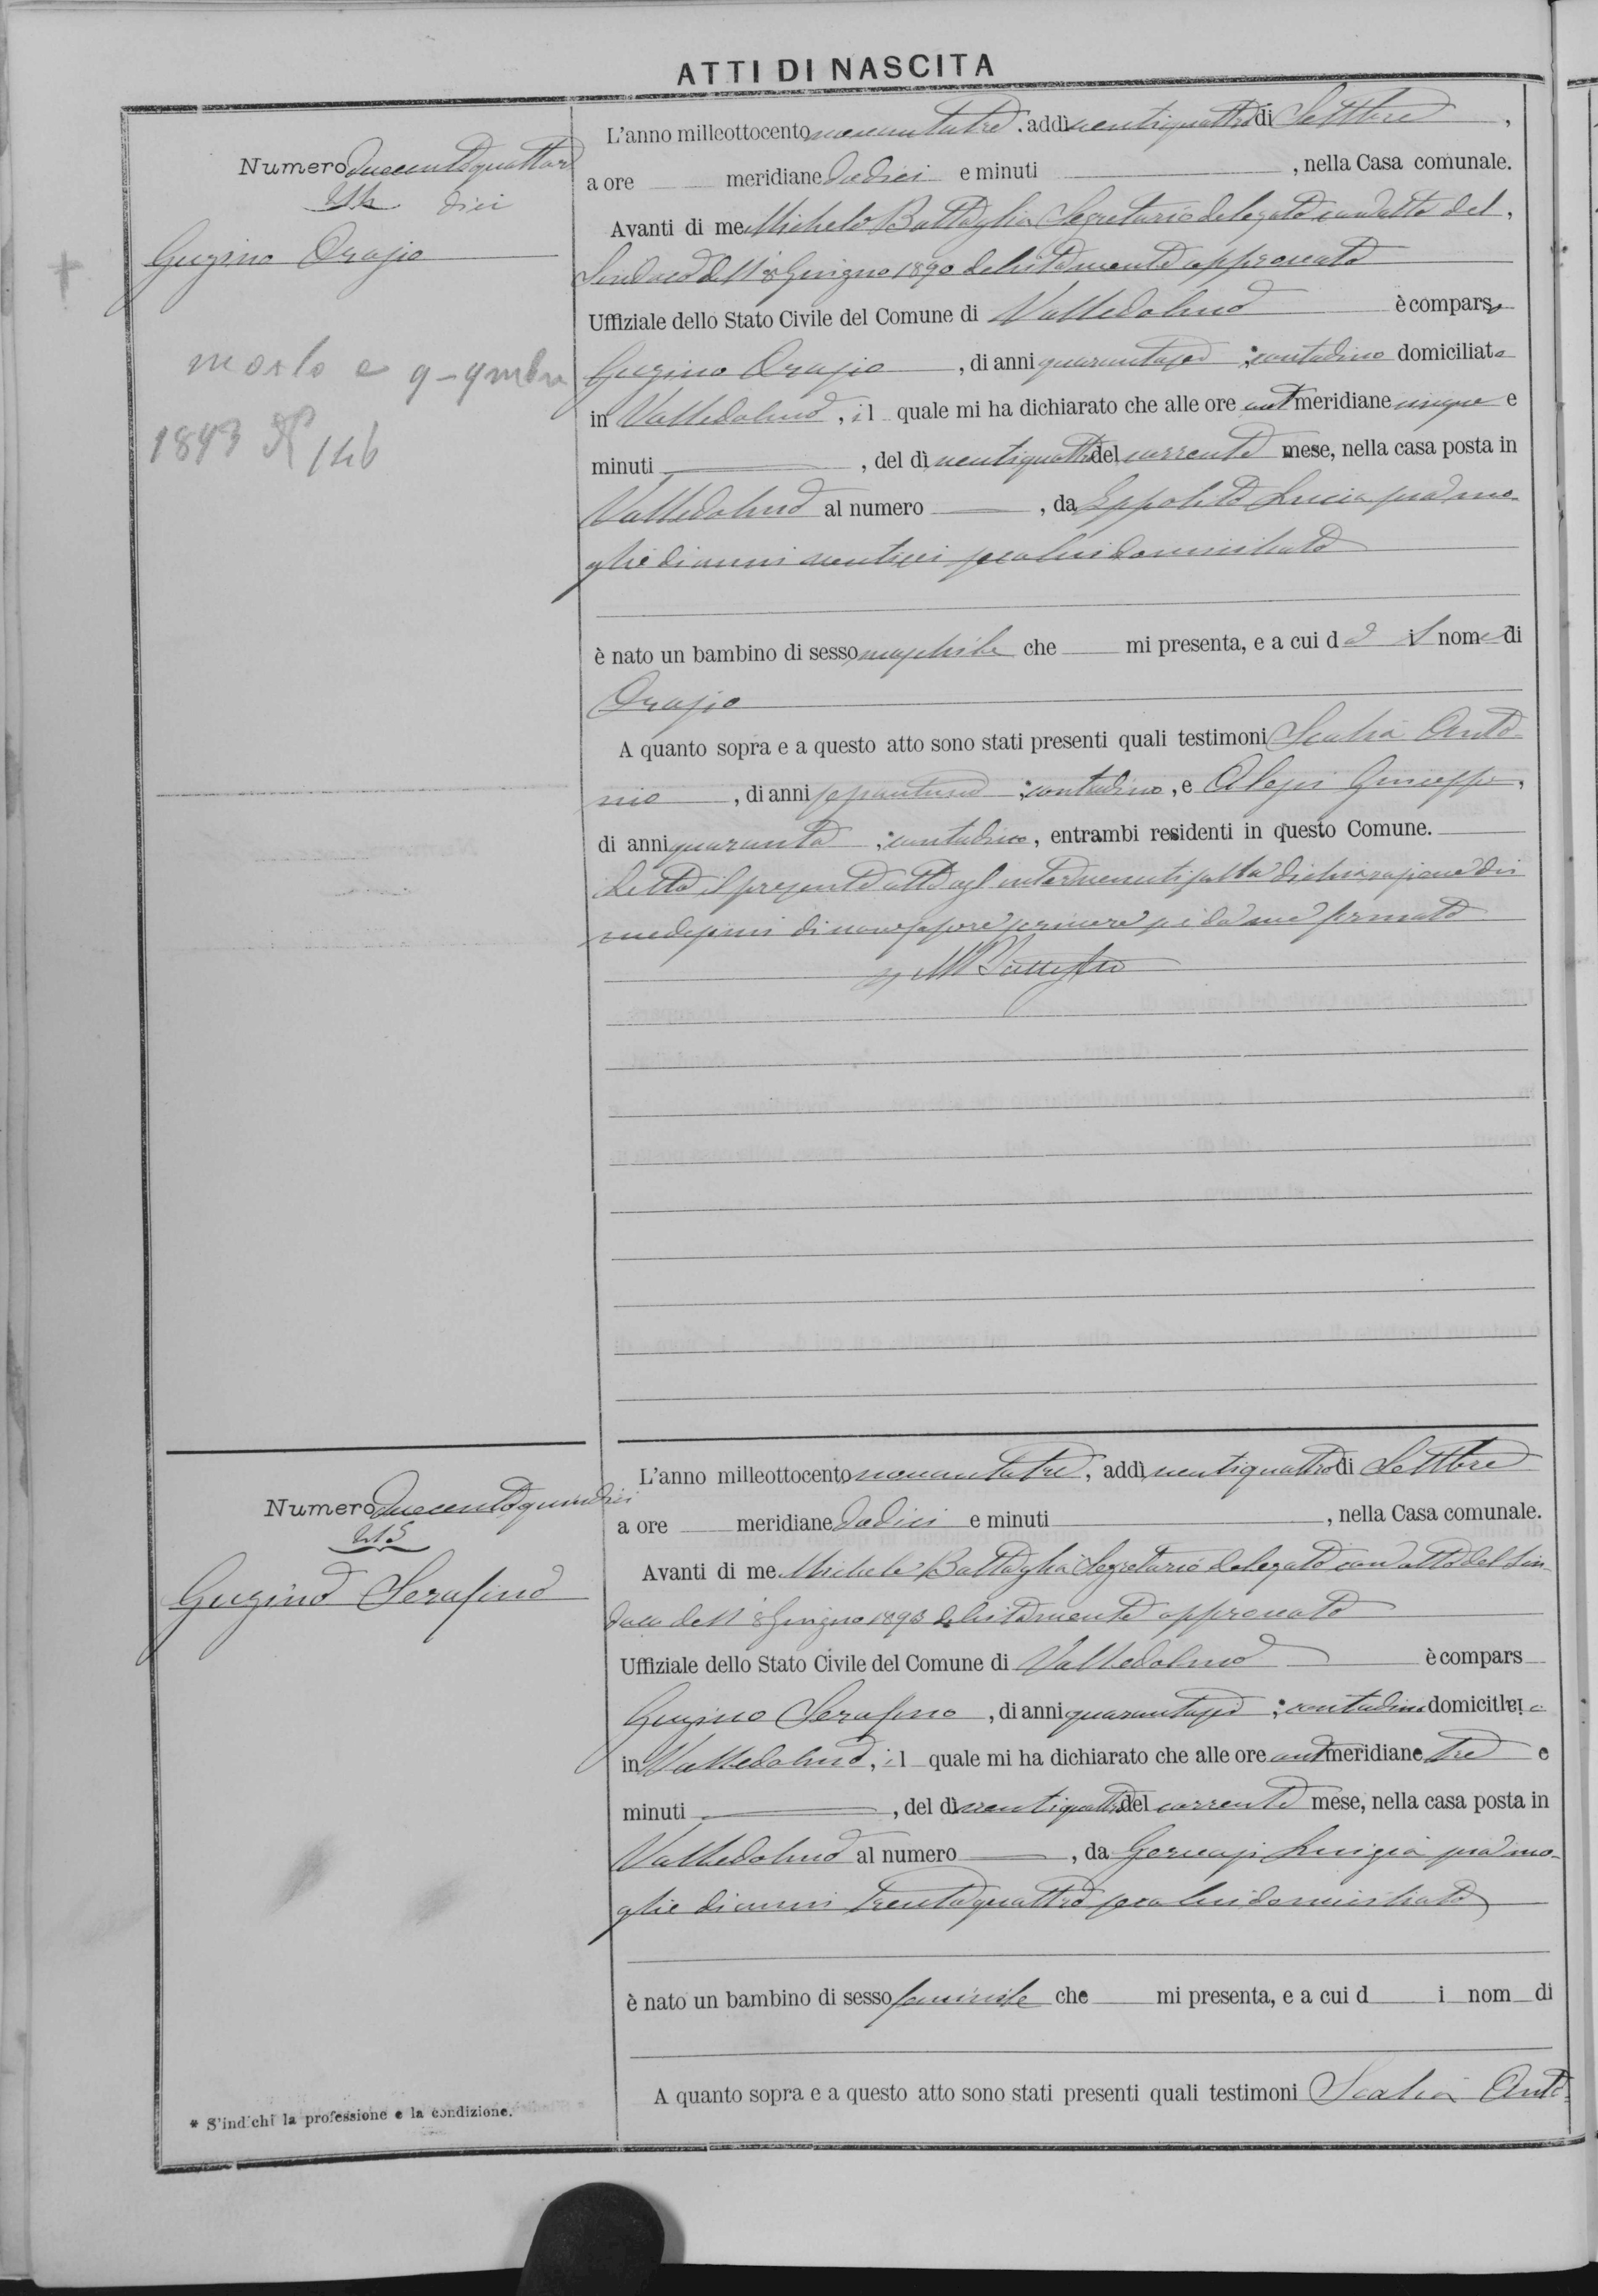 ATTI DI NASCITA
Numero duecentoquattor
214 dici
Gugino Orazio
morto a 9-9mbre
1893 N 146
L'anno milleottocento novantatre, addì ventiquattro di Settbre,
a ore meridiane dodici e minuti , nella Casa comunale.
Avanti di me Michele Battaglia Segretario delegato con atto del,
Sindaco dell' 8 Giugno 1890 debitamente approvato
Uffiziale dello Stato Civile del Comune di Valledolmo è comparso
Gugino Orazio, di anni quarantasei, contadino domiciliato
in Valledolmo, il quale mi ha dichiarato che alle ore ant meridiane cinque e
minuti , del dì ventiquattro del corrente mese, nella casa posta in
Valledolmo al numero , da Ippolito Lucia sua mo-
glie di anni seco lui domiciliata
è nato un bambino di sesso maschile che mi presenta, e a cui dà il nome di
Orazio
A quanto sopra e a questo atto sono stati presenti quali testimoni Scalia Anto-
nio, di anni sessantuno, contadino, e Alessi Giuseppe,
di anni quaranta, contadino, entrambi residenti in questo Comune.
Letto il presente atto agl'intervenuti fatta dichiarazione dai
medesimi di non sapere scrivere si è da me firmato
M Battaglia
Numero duecentoquindici
215
Gugino Serafino
L'anno milleottocento novantatre, addì ventiquattro di Settbre
a ore meridiane dodici e minuti , nella Casa comunale.
Avanti di me Michele Battaglia Segretario delegato con atto del Sin-
daco dell' 8 Giugno 1890 debitamente approvato
Uffiziale dello Stato Civile del Comune di Valledolmo è compars
Gugino Serafino, di anni quarantasei, contadino domiciliato
in Valledolmo, il quale mi ha dichiarato che alle ore ant meridiane tre e
minuti , del dì ventiquattro del corrente mese, nella casa posta in
Valledolmo al numero , da Gervasi Luigia sua mo-
glie di anni trentaquattro seco lui domiciliata
è nato un bambino di sesso feminile che mi presenta, e a cui d i nom di
A quanto sopra e a questo atto sono stati presenti quali testimoni Scalia Anto-
* S'indichi la professione e la condizione.